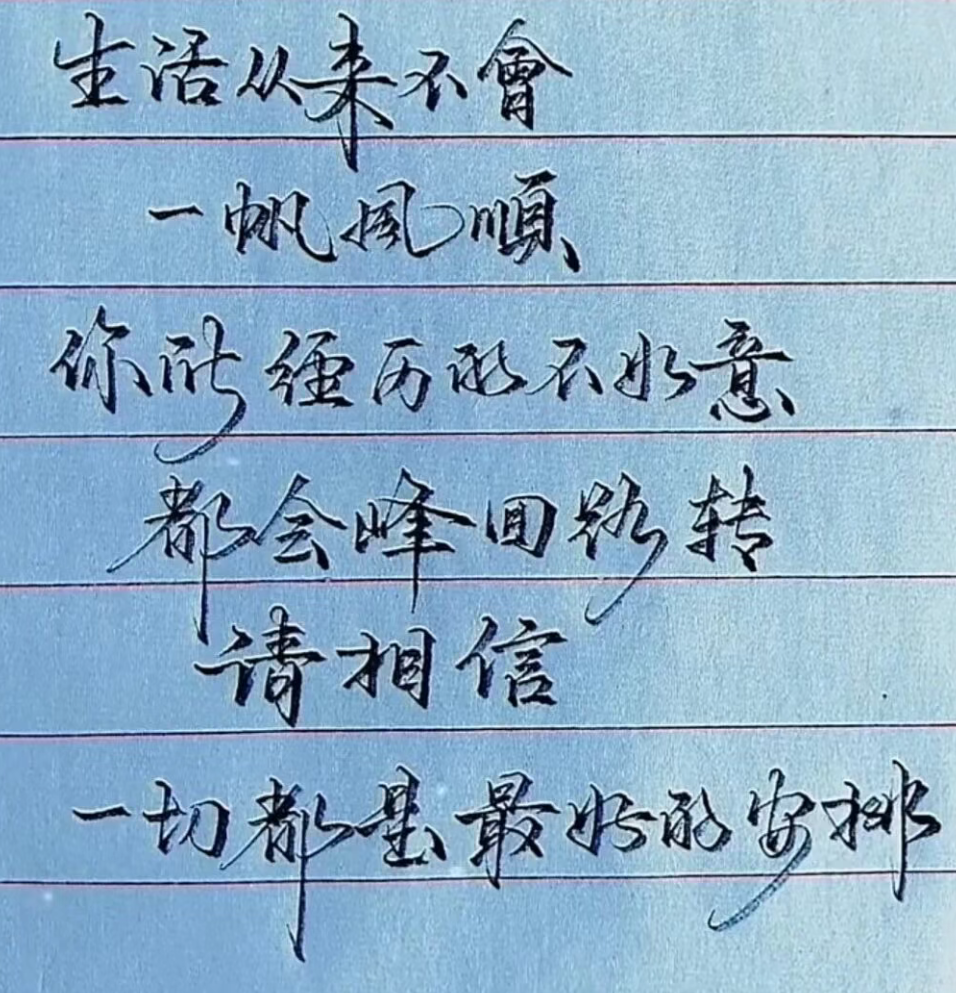 生活从来不會
一帆风順
你所经历的不如意
都会峰回路转
请相信
一切都是最好的安排